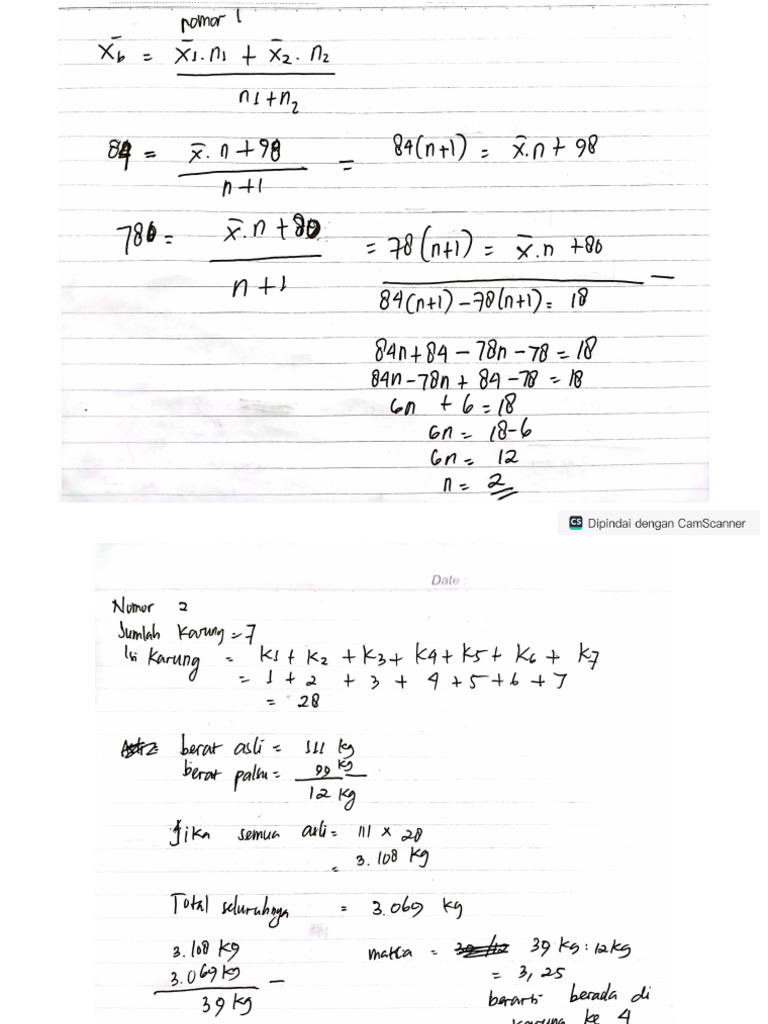 nomor 1
x̄b = x̄1.n1 + x̄2.n2
n1+n2
84 = x̄.n+98 = 84(n+1) = x̄.n + 98
n+1
780 = x̄.n+80 = 78(n+1) = x̄.n +80
n+1
84(n+1) - 78(n+1) = 18
84n+84 - 78n - 78 = 18
84n-78n + 84-78 = 18
6n + 6 = 18
6n = 18-6
6n = 12
n = 2
CS Dipindai dengan CamScanner
Date :
Nomor 2
Jumlah Karung = 7
Isi Karung = K1 + K2 + K3 + K4 + K5 + K6 + K7
= 1 + 2 + 3 + 4 + 5 + 6 + 7
= 28
berat asli = 111 kg
berat palsu = 99 kg -
12 kg
Jika semua asli = 111 x 28
= 3.108 kg
Total seluruhnya = 3.069 kg
3.108 kg
3.069 kg -
39 kg
maka = 39 kg : 12 kg
= 3,25
berarti berada di
karung ke 4